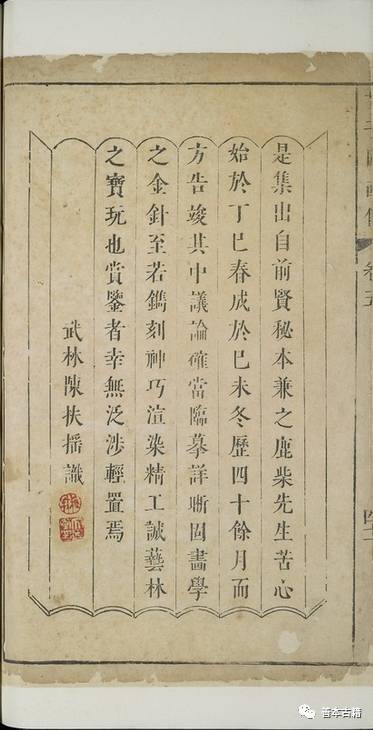 是集出自前賢秘本兼之鹿柴先生苦心
始於丁巳春成於巳未冬歷四十餘月而
方告竣其中議論確當臨摹詳晰固畵學
之金針至若鐫刻神巧渲染精工誠藝林
之寶玩也賞鑒者幸無泛涉輕置焉
武林陳扶摇識
卷五
善本古籍